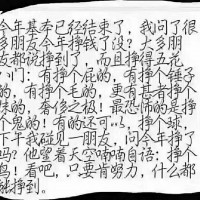 今年基本已经结束了,我问了很
多朋友今年挣钱了没?大多朋
友都说挣到了,而且挣得五花
八门:有挣个屁的,有挣个锤子
的,有挣个毛的,更有甚者挣个
妹的,奢侈之极!最恐怖的是挣
个鬼的!有的还可以,挣个球,
下午我碰见一朋友,问今年挣了
吗?他望着天空喃喃自语:挣个
鸟!看吧,只要肯努力,什么都
能挣到。